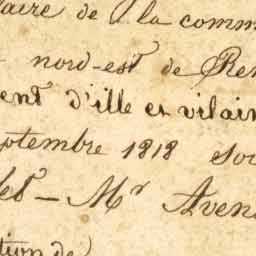 aire de la comm
nord-est de Ren
ent d'ille et vilain
ptembre 1818 sou
let - Mr Aven
tion de